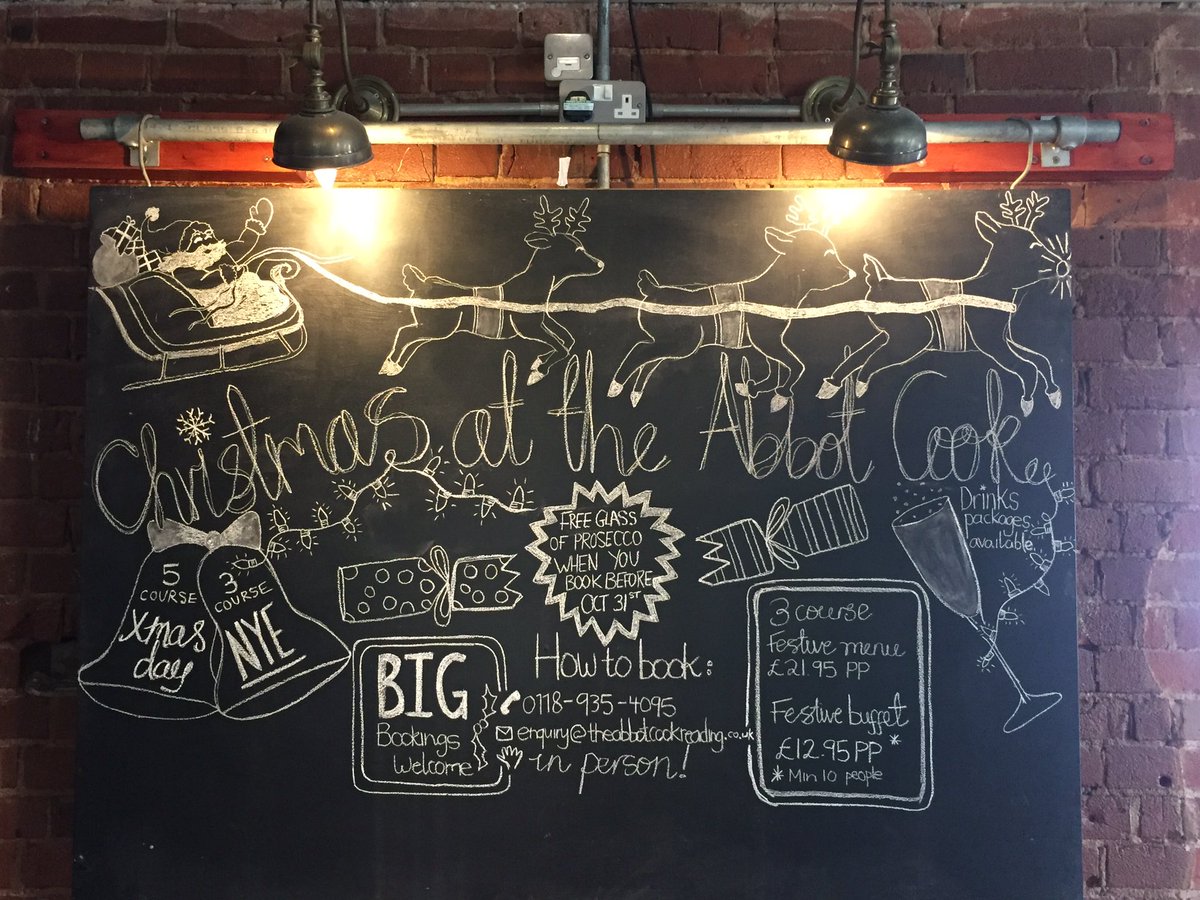 Christmas at the Abbot Cook
Drinks
packages
available
FREE GLASS
OF PROSECCO
WHEN YOU
BOOK BEFORE
OCT 31ST
5
COURSE
Xmas
day
3
COURSE
NYE
BIG
Bookings
Welcome
How to book:
0118-935-4095
enquiry@theabbotcookreading.co.uk
in person!
3 course
Festive menu
£21.95 PP
Festive buffet
£12.95 PP *
* Min 10 people